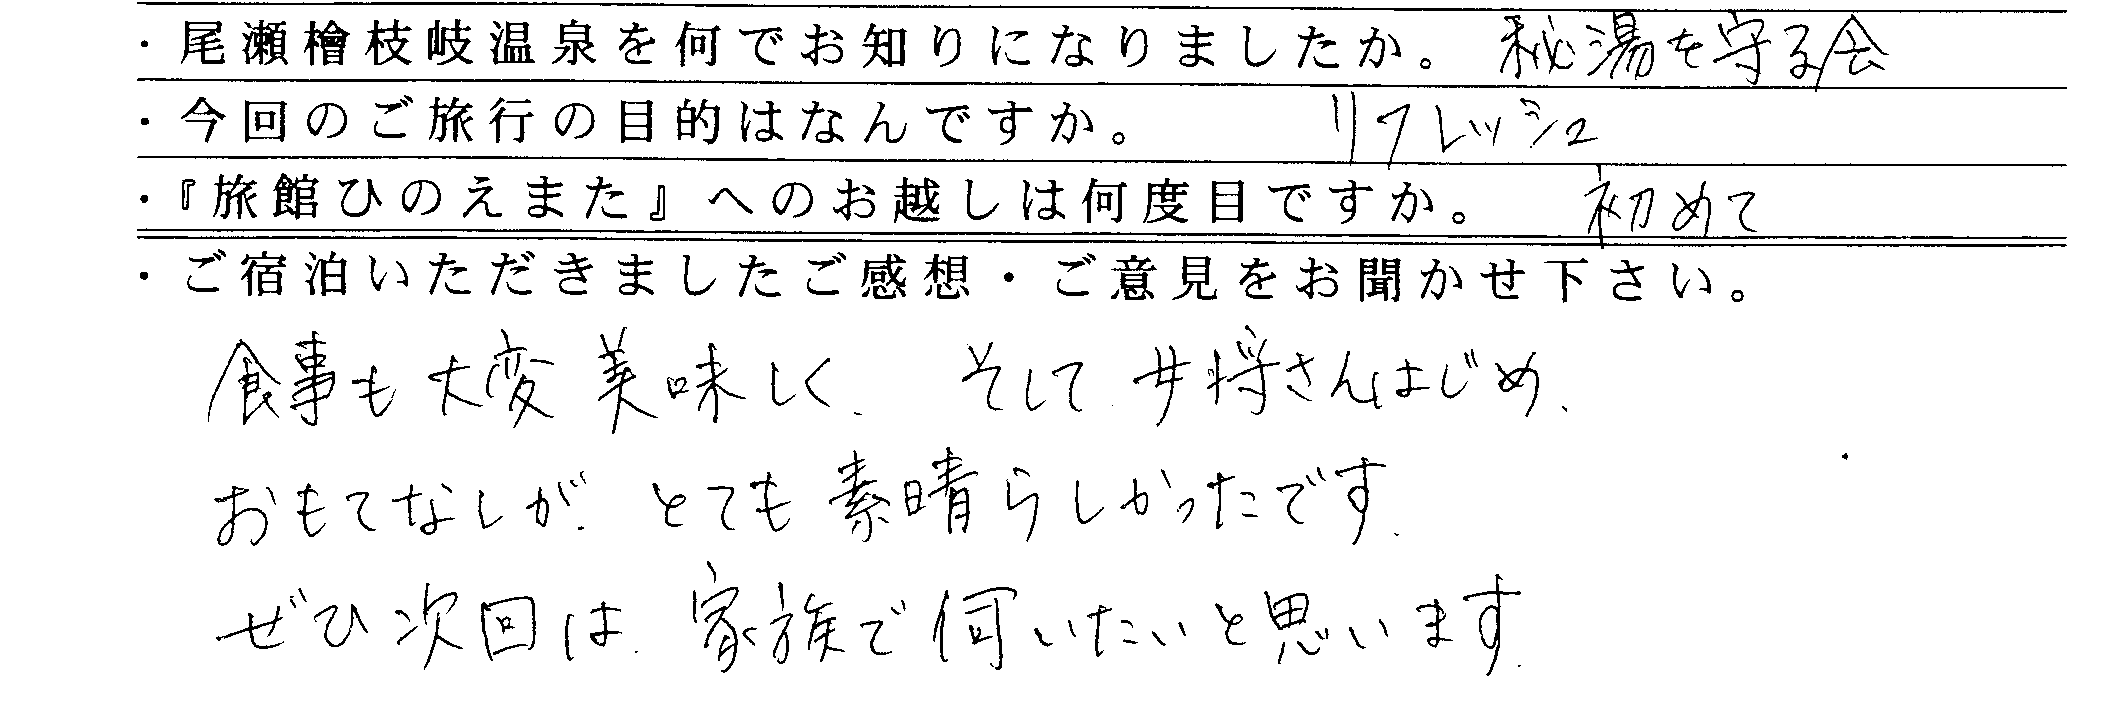 ・尾瀬檜枝岐温泉を何でお知りになりましたか。 秘湯を守る会
・今回のご旅行の目的はなんですか。 リフレッシュ
・『旅館ひのえまた』へのお越しは何度目ですか。 初めて
・ご宿泊いただきましたご感想・ご意見をお聞かせ下さい。
食事も大変美味しく、そして、女将さんはじめ、
おもてなしが、とても素晴らしかったです。
ぜひ次回は、家族で伺いたいと思います。